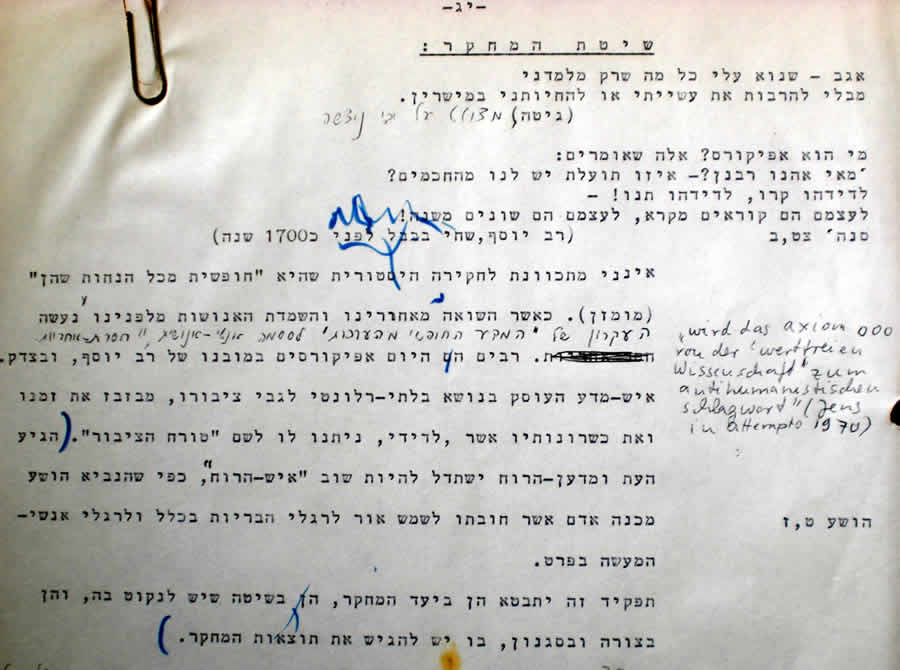 -יג-
שיטת המחקר:
אגב - שנוא עלי כל מה שרק מלמדני
מבלי להרבות את עשייתי או להחיותני במישרין.
(גיטה) מצוטט על ידי ניצשה
מי הוא אפיקורס? אלה שאומרים:
׳מאי אהנו רבנן?- איזו תועלת יש לנו מהחכמים?
לדידהו קרו, לדידהו תנו! -
לעצמם הם קוראים מקרא, לעצמם הם שונים משנה!
(רב יוסף,שחי בבבל לפני כ1700 שנה)
סנה׳ צט,ב
אינני מתכוונת לחקירה היסטורית שהיא "חופשית מכל הנחות שהן"
(מומזן). כאשר השואה מאחורינו והשמדת האנושות מלפנינו נעשה
העקרון של "המדע החופשי מהערכות" לסיסמה אנטי-אנושית, חסרת-אחריות
ת. רבים הם היום אפיקורסים במובנו של רב יוסף, ובצדק.
איש-מדע העוסק בנושא בלתי-רלונטי לגבי ציבורו, מבזבז את זמנו
ואת כשרונותיו אשר ,לדידי, ניתנו לו לשם "טורח הציבור". (הגיע
העת ומדען-הרוח ישתדל להיות שוב "איש-הרוח", כפי שהנביא הושע
מכנה אדם אשר חובתו לשמש אור לרגלי הבריות בכלל ולרגלי אנשי-
המעשה בפרט.
תפקיד זה יתבטא הן ביעד המחקר, הן בשיטה שיש לנקוט בה, והן
בצורה ובסגנון, בו יש להגיש את תוצאות המחקר. )
"wird das axiom 000
von der "wertfreien
Wissenschaft" zum
antihumanistischen
schlagwort" (Jens
in attempto 1970)
הושע ט,ז